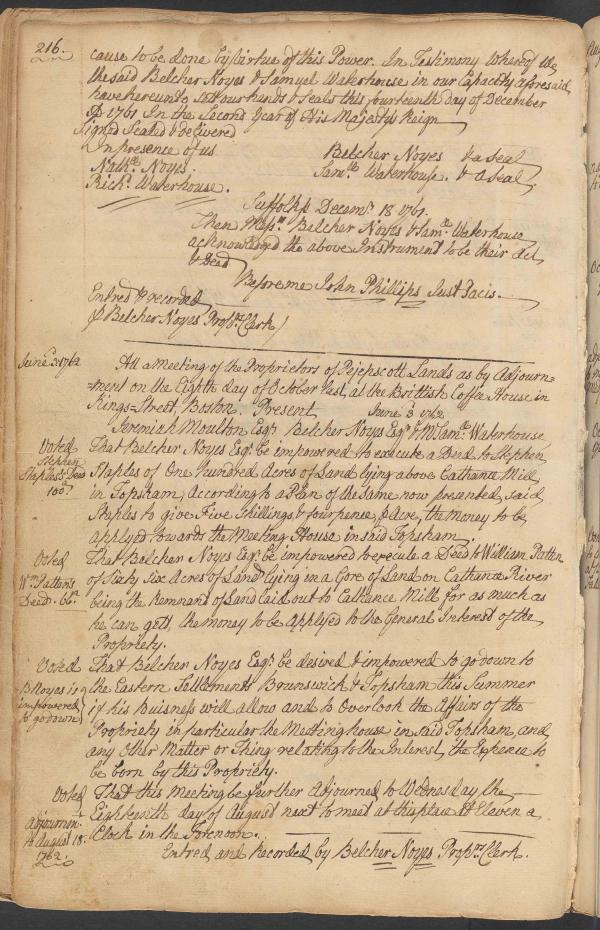 216.
cause to be done by Virtue of this Power. In Testimony Whereof We
the said Belcher Noyes & Samuel Waterhouse in our Capacity aforesaid,
have hereunto sett our hands & Seals this fourteenth day of December
1761 In the Second Year of His Majestys Reign
Signed Sealed & delivered
In presence of us
Belcher Noyes & a Seal
Nathll Noyes
Samll Waterhouse. & a Seal.
Richd. Waterhouse.
Suffolk ss Decemr. 18 1761.
Then Messrs. Belcher Noyes & Saml. Waterhouse
acknowledged the above Instrument to be their Act
& Deed
Before me John Phillips Just Pacis.
Entred & recorded
p Belcher Noyes Proprs Clerk
June 3. 1762
At a Meeting of the Proprietors of Pejepscott Lands as by Adjourn=
=ment on the Eighth day of October last, at the Brittish Coffee House in
Kings=Street, Boston. Present, June 3 1762
Jeremiah Moulton Esqr. Belcher Noyes Esqr & Mr Saml. Waterhouse
Voted
Stephen
Staples's Deed
100a.
That Belcher Noyes Esqr. be impowered to execute a Deed to Stephen
Staples of One hundred Acres of Land lying above Cathance Mill,
in Topsham, According to a Plan of the Same now presented, said
Staples to give Five Shillings & fourpence, p Acre, the Money to be
applyed towards the Meeting House in said Topsham.
Voted
Wm Pattens
Deed. 66a.
That Belcher Noyes Esqr. be impowered to execute a Deed to William Patten
of Sixty Six Acres of Land lying in a Gore of Land on Cathance River
being the Remnant of Land laid out to Cathance Mill for as much as
he can gett, the money to be applyed to the General Interest of the
Propriety.
Voted
B Noyes is
impowered
to go down
That Belcher Noyes Esqr. be desired & impowered to go down to
the Eastern Settlements Brunswick & Topsham this Summer
if his Buisness will allow and to Overlook the Affairs of the
Propriety in particular the Meeting house in said Topsham, and
any Other Matter or Thing relating to the Interest, the Expence to
be born by this Propriety.
Voted
Adjournmt
to August 18.
1762.
That this Meeting be further Adjourned to Wednesday the
Eighteenth day of August next to meet at this place at Eleven a
Clock in the Forenoon.
Entred and Recorded by Belcher Noyes Proprs Clerk.